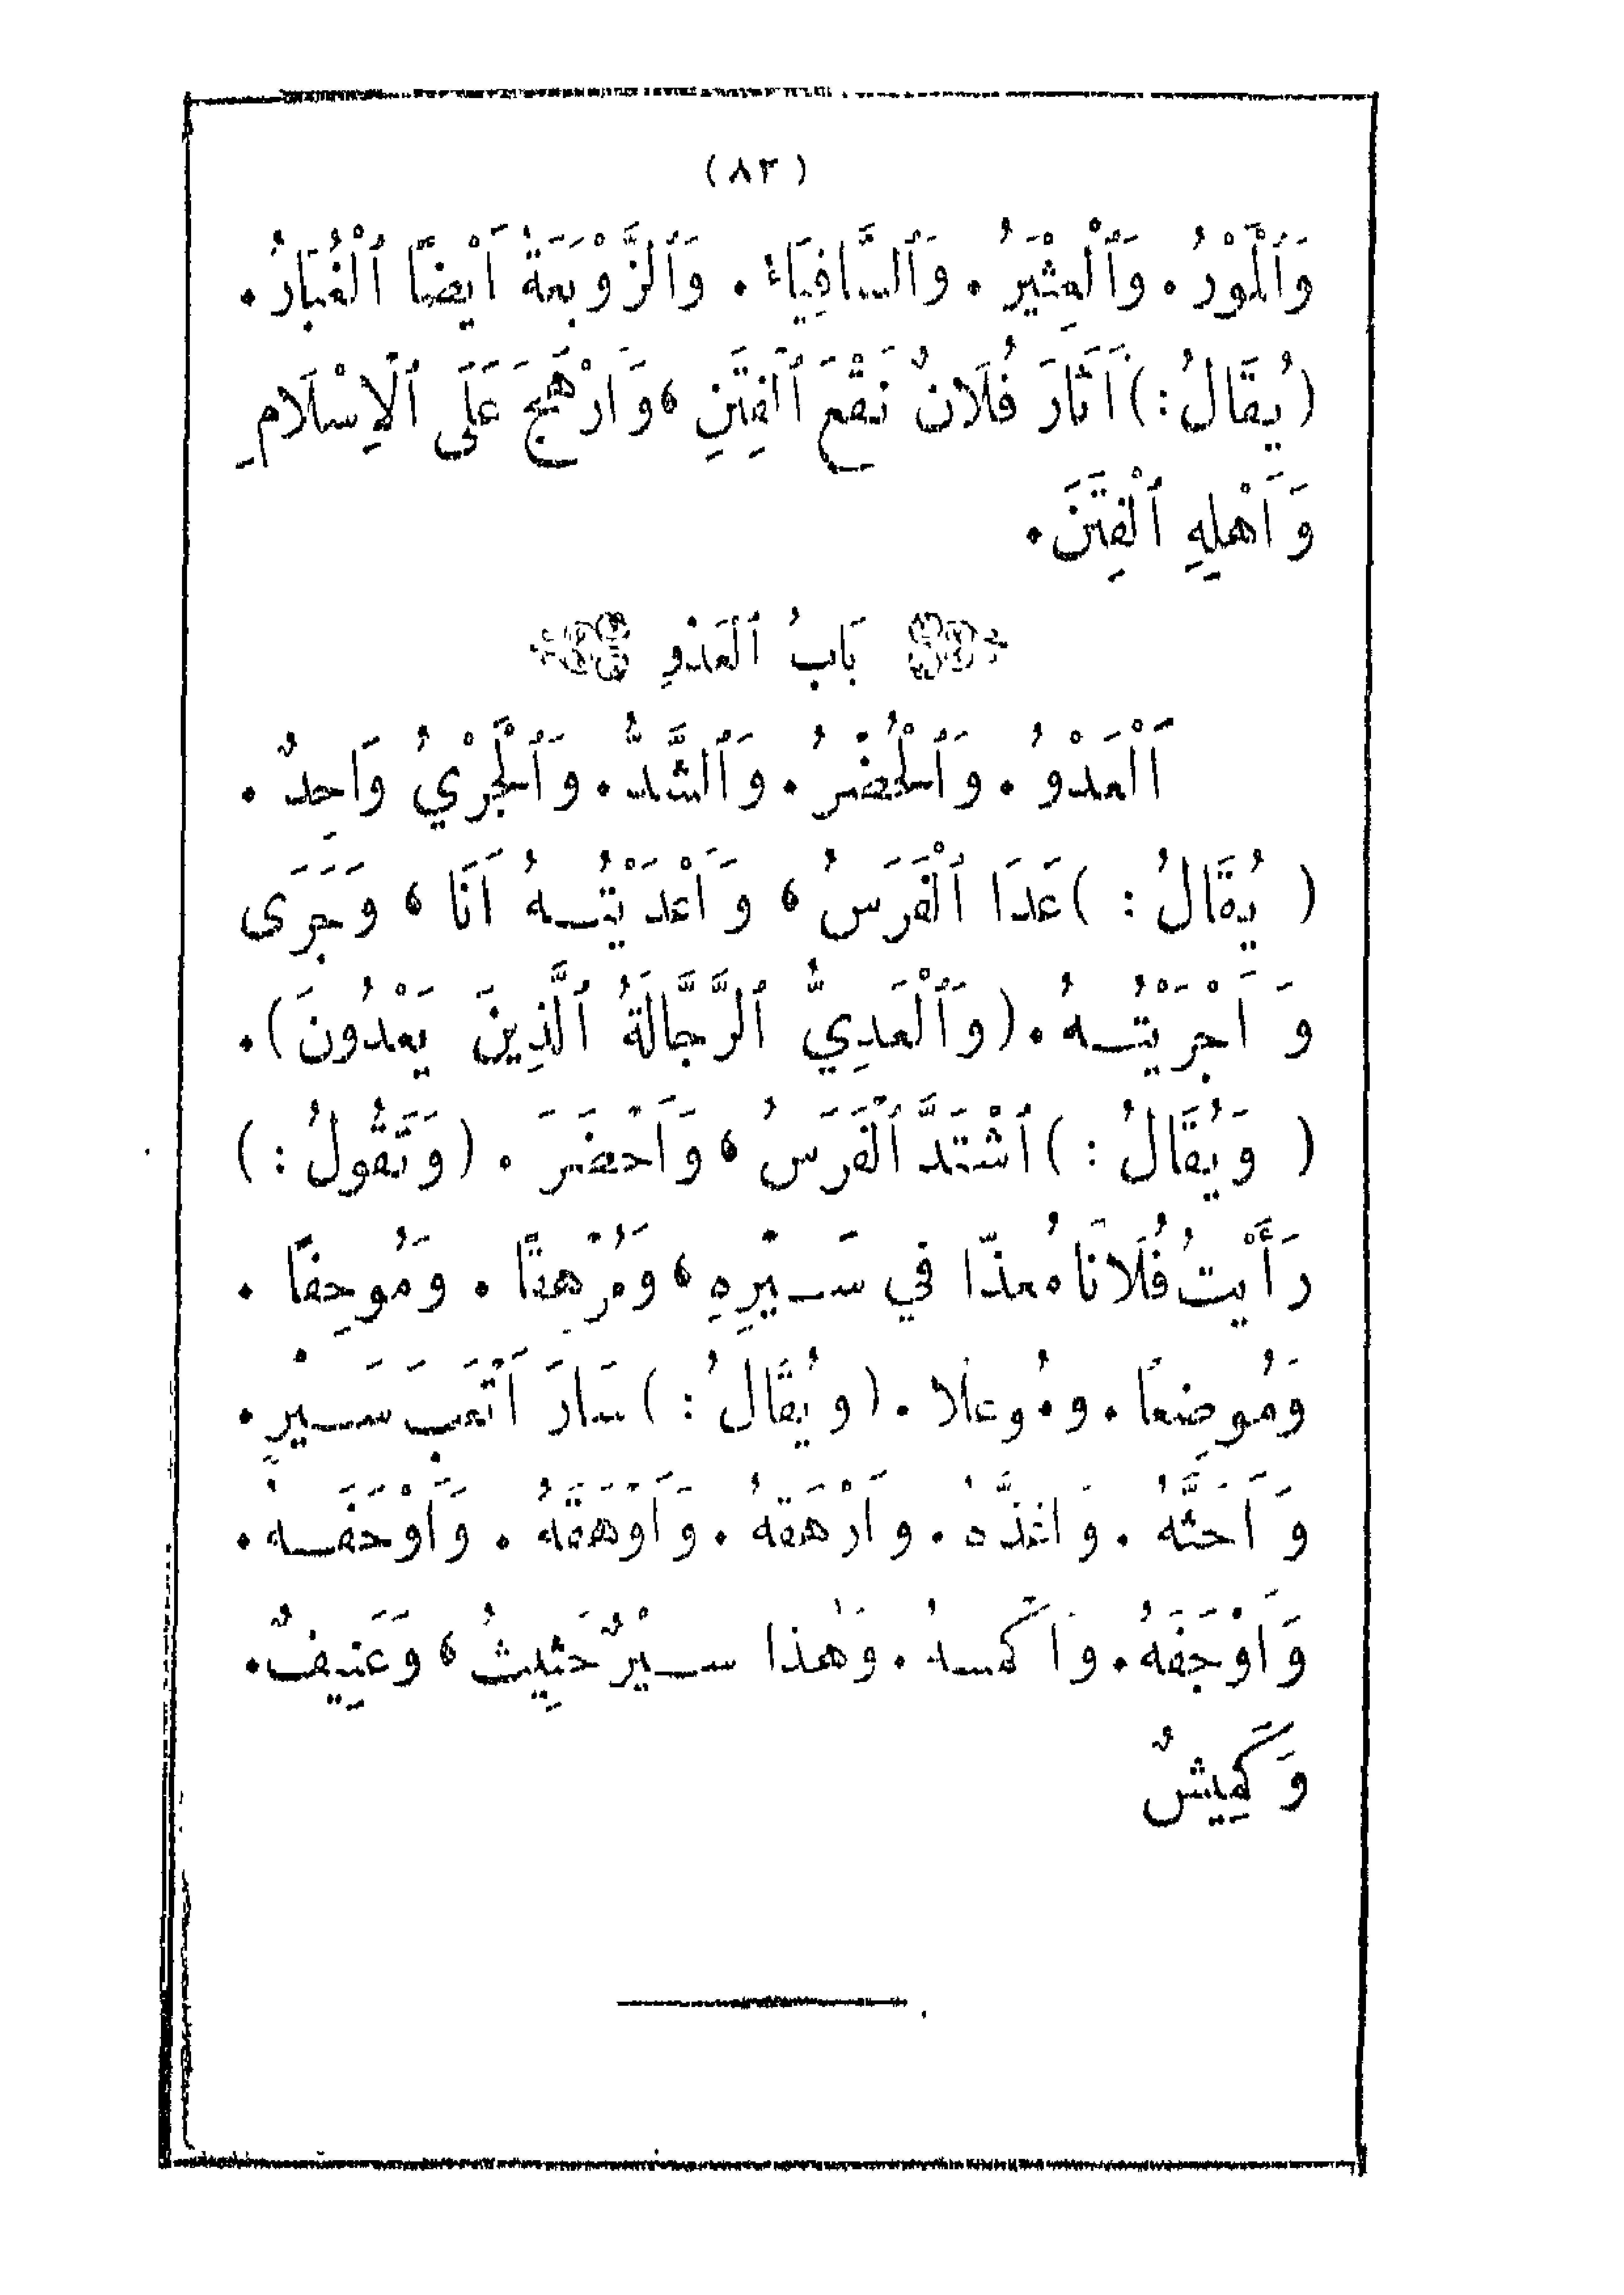 (٨٣)
وَٱلْمَوْرُ. وَٱلْعِثْيَرُ. وَٱلسَّافِيَاءُ. وَٱلزَّوْبَعَةُ اَيْضًا ٱلْغُبَارُ.
(يُقَالُ:) اَثَارَ فُلَانٌ نَقْعَ ٱلْفِتَنِ، وَاَرْهَجَ عَلَى ٱلْاِسْلَامِ
وَاَهْلِهِ ٱلْفِتَنَ.
بَابُ ٱلْعَدْوِ
اَلْعَدْوُ. وَٱلْحُضْرُ. وَٱلشَّدُّ. وَٱلْجَرْيُ وَاحِدٌ.
(يُقَالُ:) عَدَا ٱلْفَرَسُ، وَاَعْدَيْتُهُ اَنَا، وَجَرَى
وَاَجْرَيْتُهُ. (وَٱلْعَدِيُّ ٱلرَّجَّالَةُ ٱلَّذِينَ يَعْدُونَ).
(وَيُقَالُ:) ٱشْتَدَّ ٱلْفَرَسُ، وَاَحْضَرَ. (وَتَقُولُ:)
رَأَيْتُ فُلَانًا مُغِذًّا فِي سَيْرِهِ، وَمُرْهِقًا. وَمُوجِفًا.
وَمُوضِعًا. وَمُوغِلًا. (وَيُقَالُ:) سَارَ اَتْعَبَ سَيْرٍ.
وَاَحَثَّهُ. وَاَغَذَّهُ. وَاَرْهَقَهُ. وَاَوْهَقَهُ. وَاَوْحَفَهُ.
وَاَوْجَفَهُ. وَاَكْمَشَهُ. وَهٰذَا سَيْرٌ حَثِيثٌ، وَعَنِيفٌ.
وَكَمِيشٌ